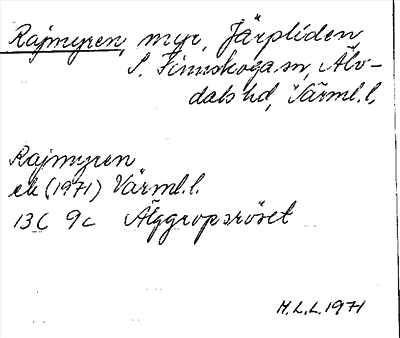 Rajmyren, myr, Järpliden
S. Finnskoga sn, Älv-
dals hd, Värml.l.
Rajmyren
ek (1971) Värml.l.
13C 9c Älggropsröset
M.L.L. 1971